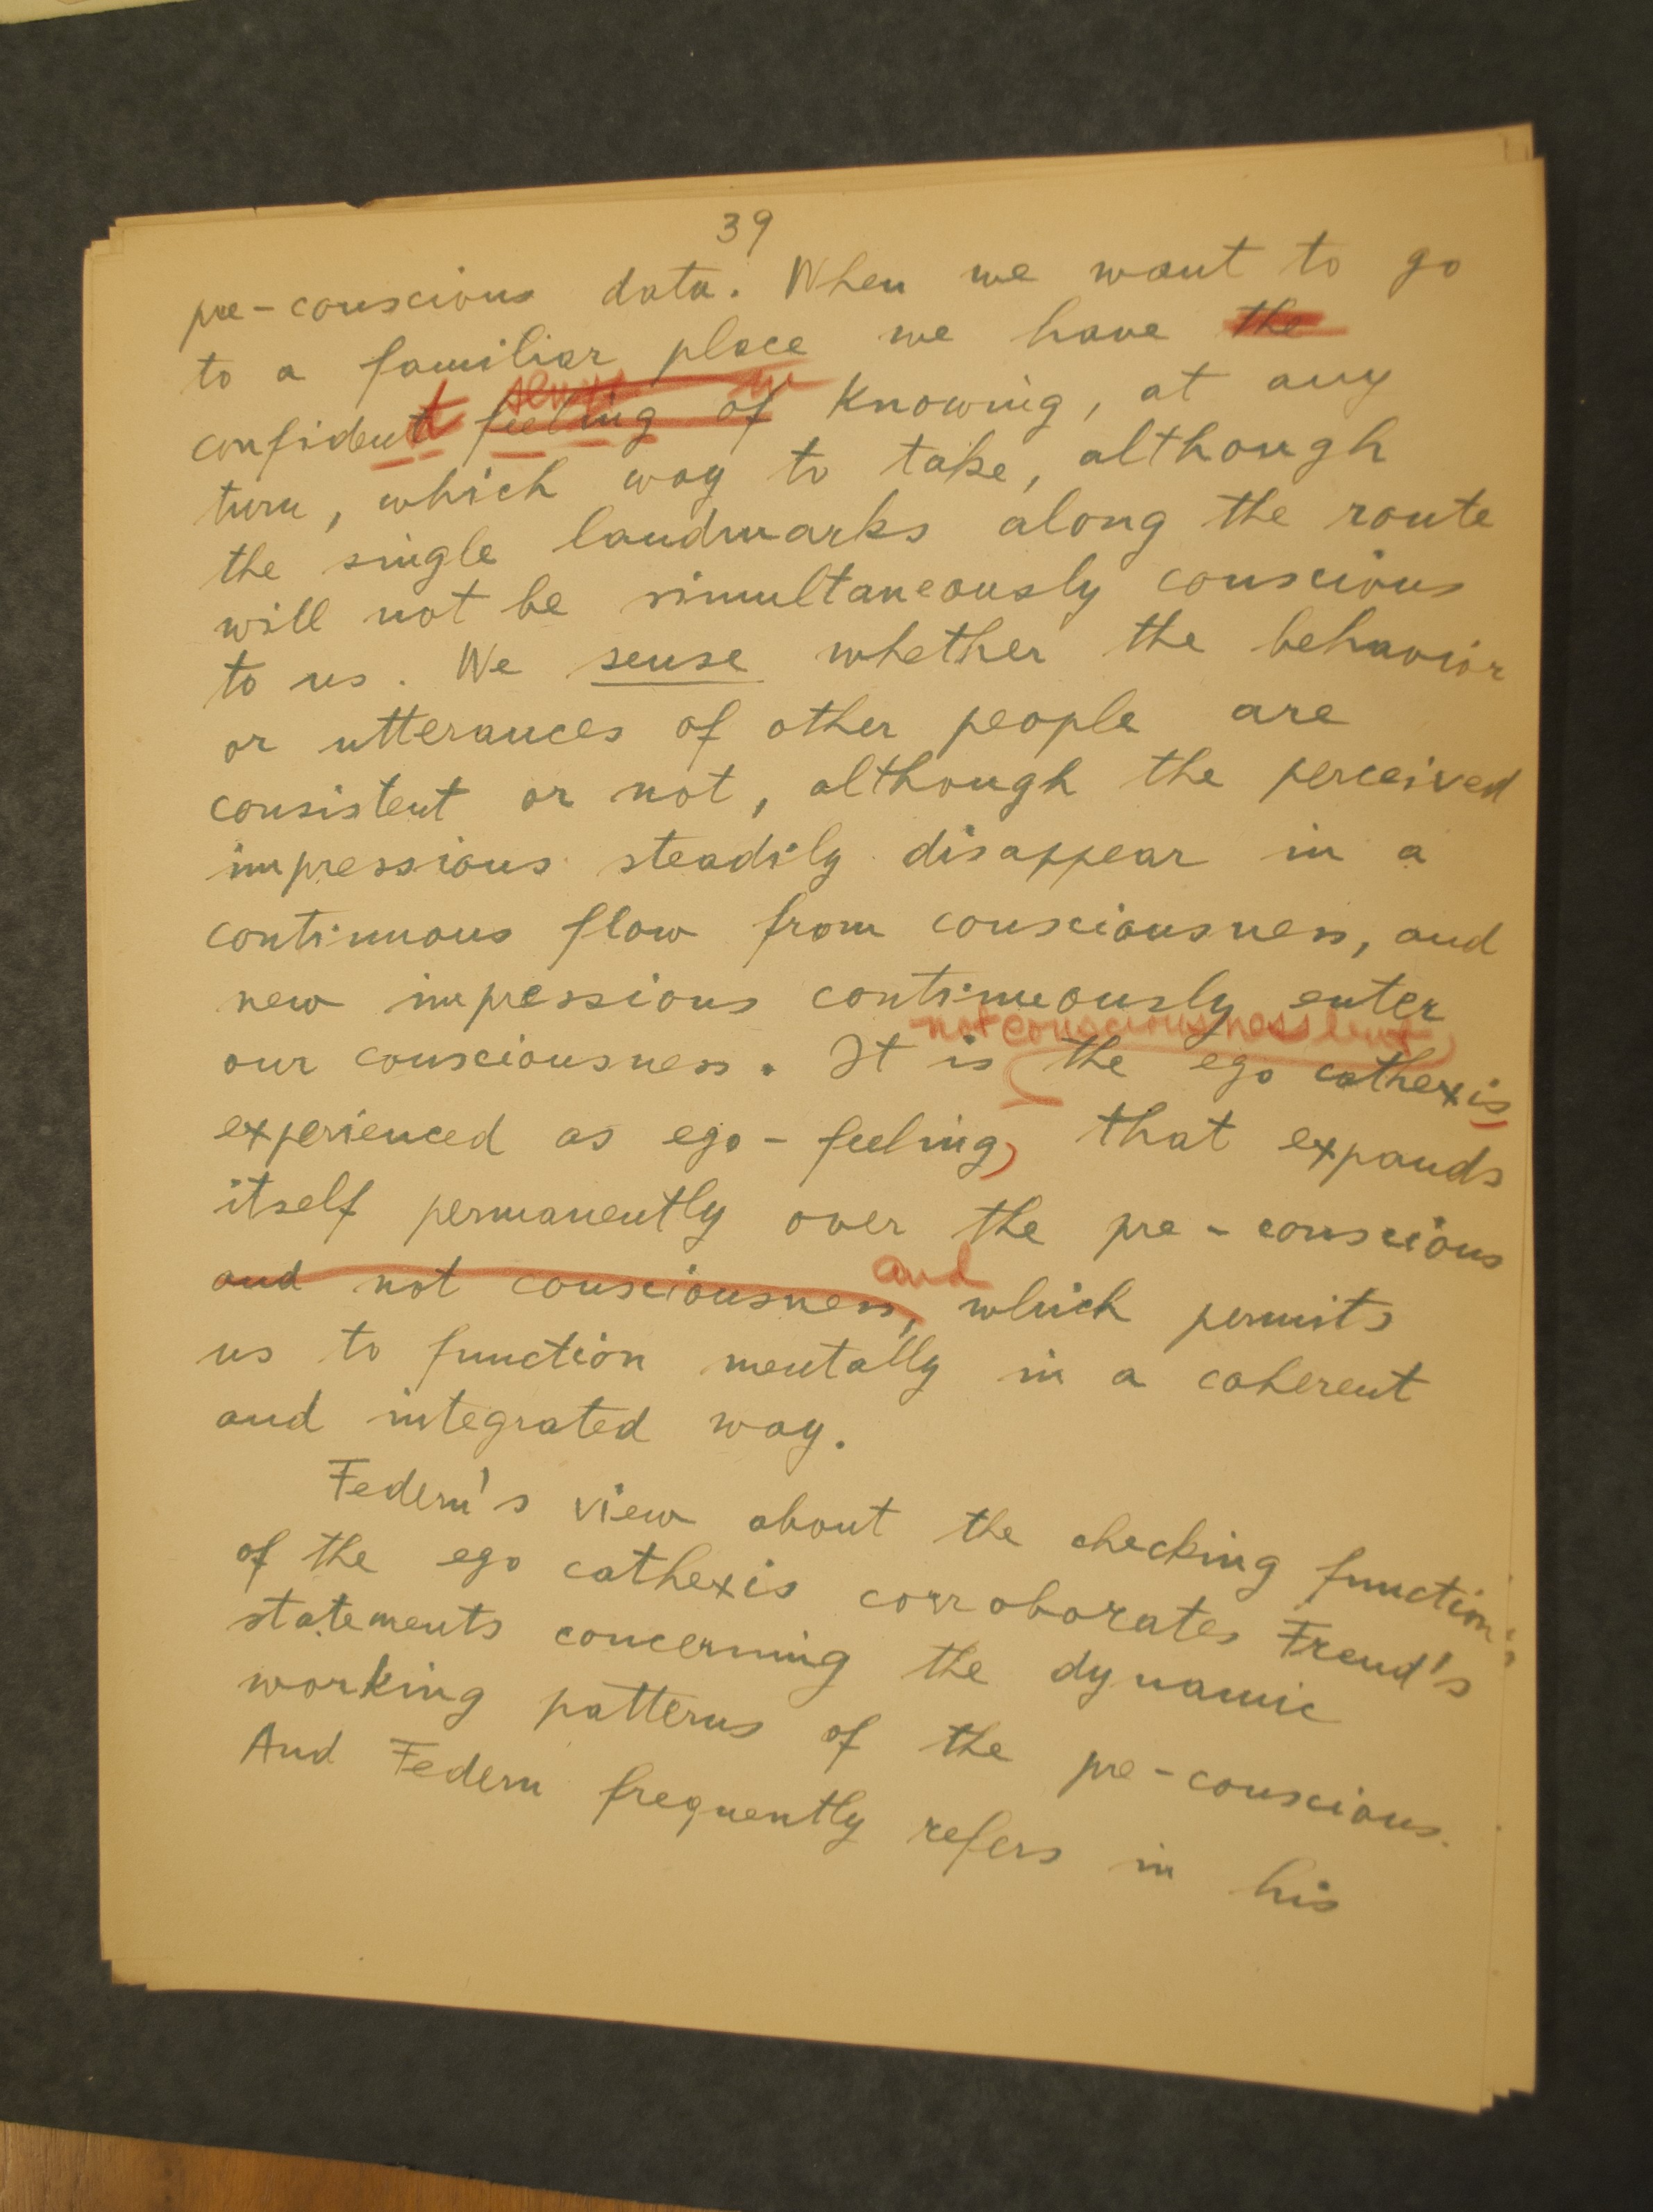 39
pre-conscious data. When we want to go
to a familiar place we have the
confident feeling of knowing, at any
turn, which way to take, although
the single landmarks along the route
will not be simultaneously conscious
to us. We sense whether the behavior
or utterances of other people are
consistent or not, although the perceived
impressions steadily disappear in a
continuous flow from consciousness, and
new impressions continuously enter
not consciousness but
our consciousness. It is the ego cathexis,
experienced as ego-feeling, that expands
itself permanently over the pre-conscious
and
and not consciousness, which permits
us to function mentally in a coherent
and integrated way.
Federn's view about the checking function
of the ego cathexis corroborates Freud's
statements concerning the dynamic
working patterns of the pre-conscious.
And Federn frequently refers in his